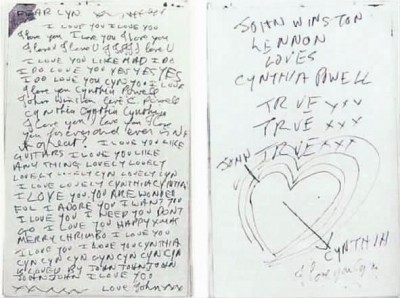 DEAR CYN
I LOVE YOU I LOVE YOU
I love you I love you I love you
I love U I love U
I LOVE YOU LIKE MAD I DO
I DO LOVE YOU YES YES YES
I DO LOVE YOU CYN YOU I LOVE
I love you Cynthia Powell
John Winston love C. Powell
Cynthia Cynthia Cynthia
I love you I love you I love
you forever and ever isn't
it great? I LOVE YOU LIKE
GUITARS I LOVE YOU LIKE
ANYTHING LOVELY LOVELY
LOVELY LOVELY CYN LOVELY CYN
I LOVE LOVELY CYNTHIA CYNTHIA
I LOVE YOU. YOU ARE WONDER
FUL I ADORE YOU I WANT YOU
I LOVE YOU I NEED YOU DONT
GO I LOVE YOU HAPPY XMAS
MERRY CHRIMBO I LOVE YOU
I LOVE YOU I LOVE YOU CYNTHIA
CYN CYN CYN CYN CYN CYN CYN
IS LOVED BY JOHN JOHN JOHN
JOHN JOHN I LOVE
LOVE John xxx
JOHN WINSTON
LENNON
LOVES
CYNTHIA POWELL
TRUE xxx
TRUE xxx
TRUE xxx
JOHN
CYNTHIA